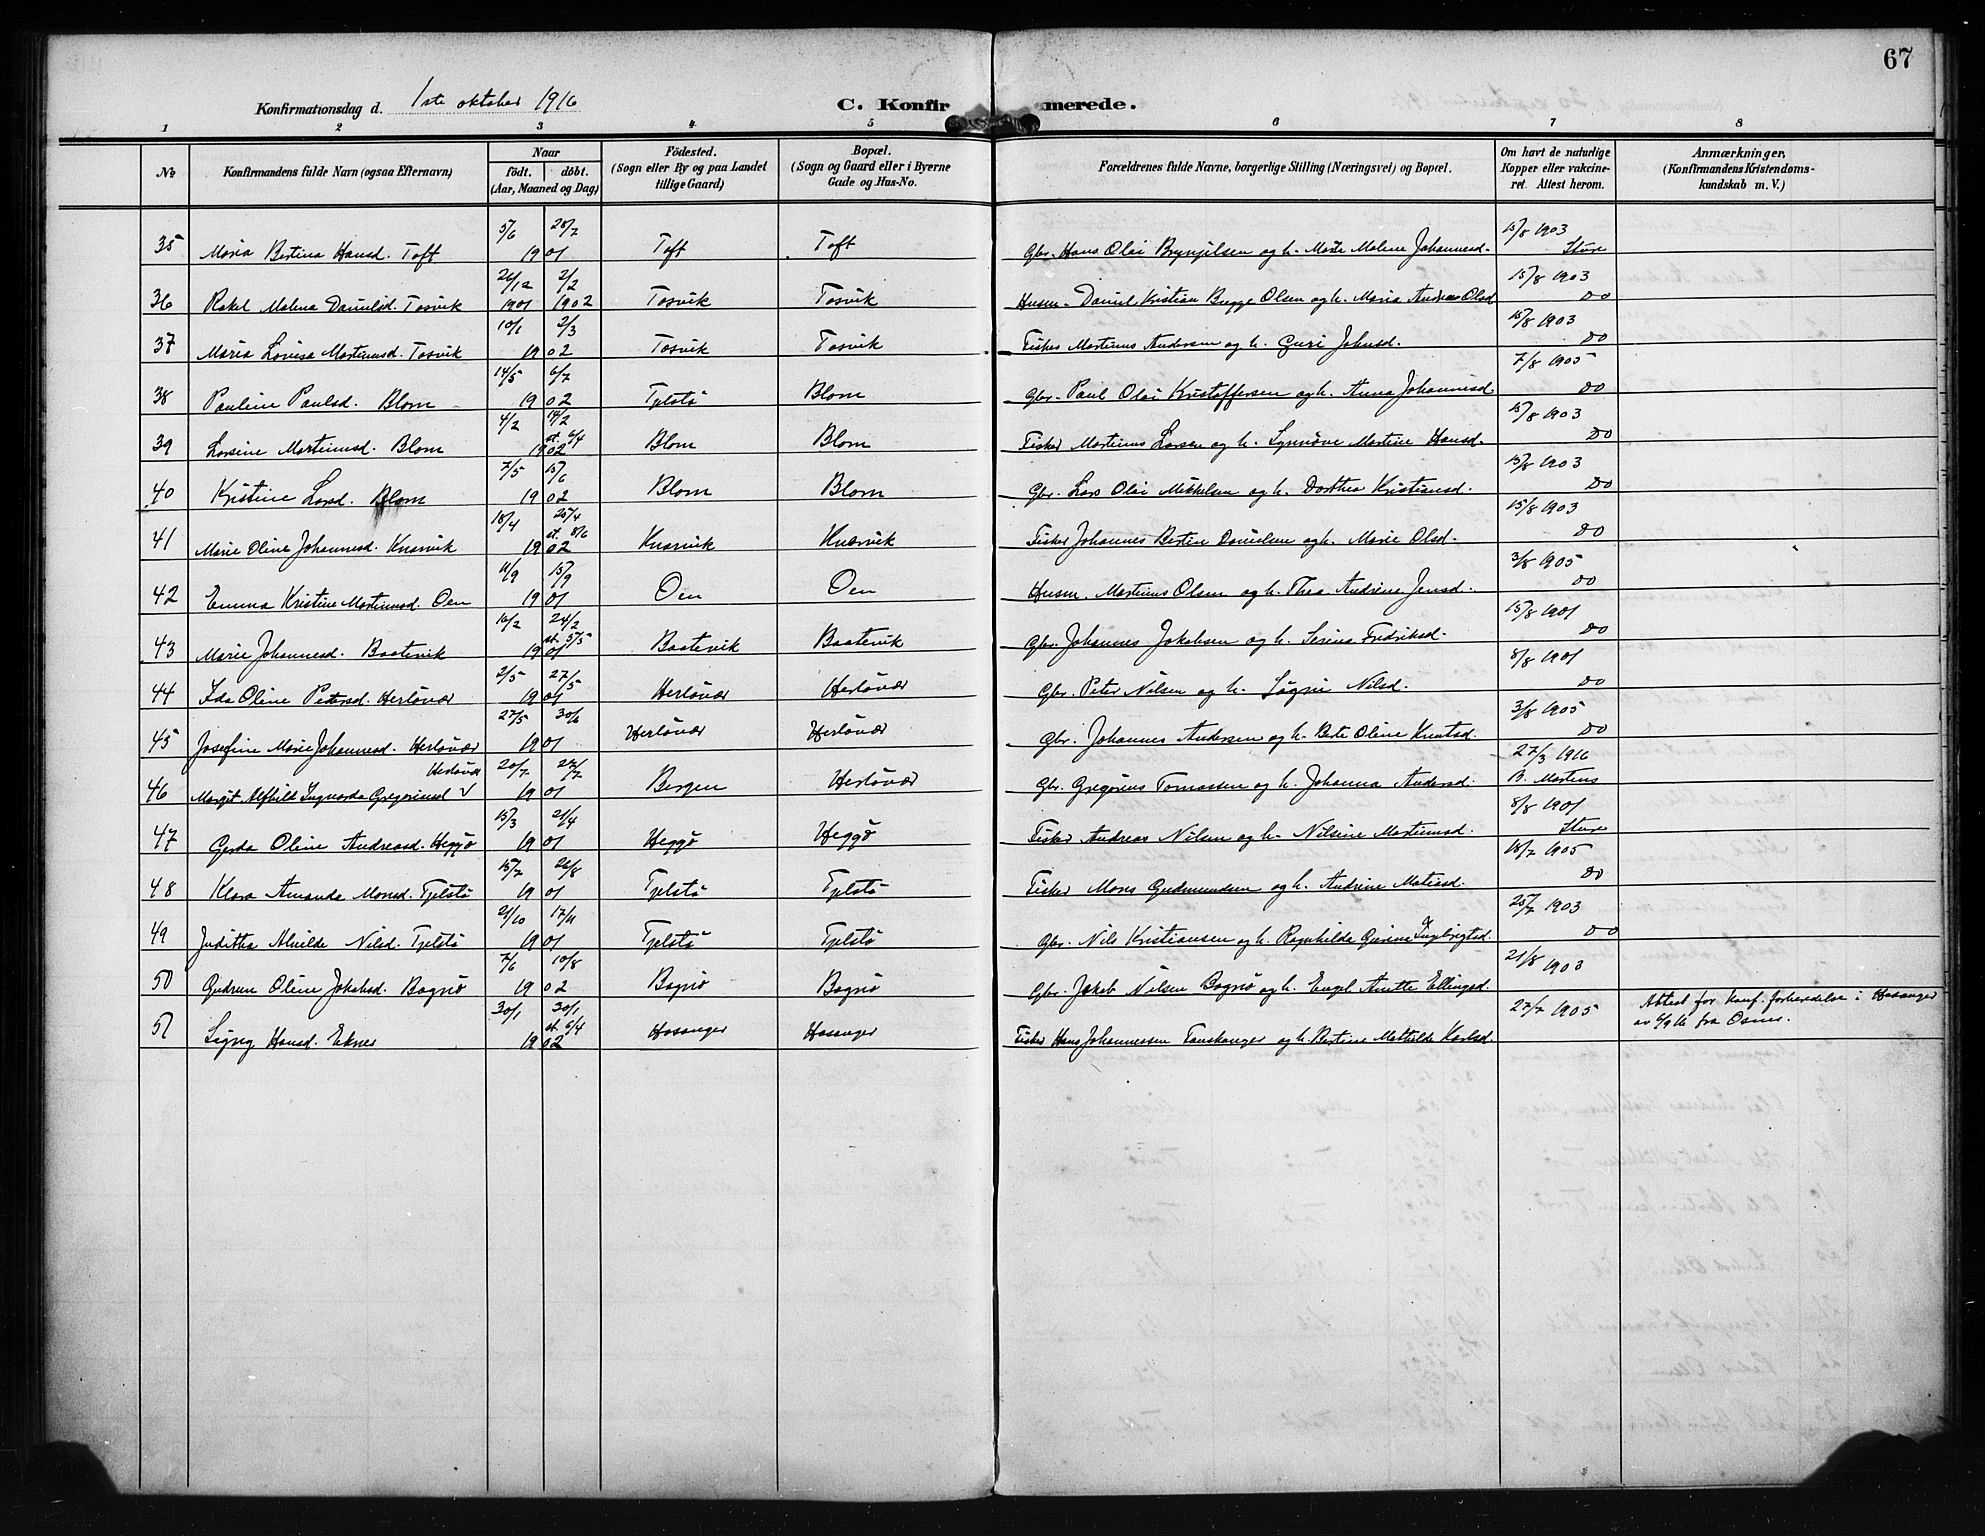 67
Konfirmationsdag d. 1ste oktober 1916 C. Konfirmerede.
1 2 3 4 5 6 7 8
No Konfirmandens fulde Navn (ogsaa Efternavn) Naar födt. döbt. (Aar, Maaned og Dag) Födested. (Sogn eller By og paa Landet tillige Gaard) Bopæl. (Sogn og Gaard eller i Byerne Gade og Hus-No. Forældrenes fulde Navne, borgerlige Stilling (Næringsvei) og Bopæl. Om havt de naturlige Kopper eller vakcineret. Attest herom. Anmærkninger, (Konfirmandens Kristendomskundskab m. V.)
35 Maria Bertina Hansd. Toft 5/6 28/7 1901 Toft Toft Gbr. Hans Olai Brynjelsen og h. Malene Johannesd. 15/8 1903 Sture
36 Rakel Malena Danielsd. Tosvik 26/12 1901 2/2 1902 Tosvik Tosvik Husm. Daniel Kristian Bugge Olsen og h. Maria Andrea Olsd 15/8 1903 Do
37 Maria Lovisa Martinusd. Tosvik 10/1 2/3 1902 Tosvik Tosvik Fisker Martinus Andersen og h. Guri Johnsd. 15/8 1903 Do
38 Pauline Paulsd. Blom 14/5 6/7 1902 Tjelstö Blom Gbr. Paul Olai Kristoffersen og h. Anna Johannesd. 7/8 1905 Do
39 Larsine Martinusd. Blom 4/2 14/2 st. 6/4 1902 Blom Blom Fisker Martinus Larsen og h. Synnöve Martine Hansd. 15/8 1903 Do
40 Kristine Larsd. Blom 7/5 15/6 1902 Blom Blom Gbr. Lars Olai Mikkelsen og h. Dorthea Kristiansd. 15/8 1903 Do
41 Marie Oline Johannesd. Knarvik 18/4 25/4 st. 8/6 1902 Knarvik Knarvik Fisker Johannes Bertin Danielsen og h. Marie Olsd. 15/8 1903 Do
42 Emma Kristine Martinusd. Oen 11/9 15/9 1901 Oen Oen Husm. Martinus Olsen og h. Thea Andrine Jensd. 3/8 1905 Do
43 Marie Johannesd. Baatevik 16/2 24/2 st. 5/5 1901 Baatevik Baatevik Gbr. Johannes Jakobsen og h. Serina Fredriksd. 15/8 1901 Do
44 Ida Oline Petersd. Herlövær 2/5 27/5 1901 Herlövær Herlövær Gbr. Peter Nilsen og h. Nilsd. 8/8 1901 Do
45 Josefine Marie Johannesd. Herlövær 27/5 30/6 1901 Herlövær Herlövær Gbr. Johannes Andersen og h. Berte Oline Knutsd. 3/8 1905 Do
46 Margit Alfhild Ingvarda Gregoriusd Herlövær 20/7 1901 Bergen Herlövær Gbr. Gregorius Tomassen og h. Johanna Andersd. 27/3 1916 B. Martens
47 Gerda Oline Andreasd. Heggö 15/3 21/4 1901 Heggö Heggö Fisker Andreas Nilsen og h. Nilsine Martinusd. 8/8 1901 Sture
48 Klara Amanda Monsd. Tjelstö 15/7 26/8 1901 Tjelstö Tjelstö Fisker Mons Gudmundsen og h. Andrine Matiasd. 18/7 1905 Do
49 Juditha Alvilde Nilsd. Tjelstö 21/10 17/11 1901 Tjelstö Tjelstö Gbr. Nils Kristiansen og h. Ragnhilda Gurina Ingebrigtsd. 25/7 1903 Do
50 Gudrun Oline Jakobsd. Bognö 7/6 10/8 1902 Bognö Bognö Gbr. Jakob Nilsen Bognö og h. Engel Anette Ellingsd. 21/8 1903
51 Hansd. Eknes 30/1 30/1 st. 6/4 1902 Hosanger Hosanger Fisker Hans Johannessen Tanskanger og h. Bertine Mathilde Karlsd. 27/7 1905 Attest for konf. forberedelse i Hosanger